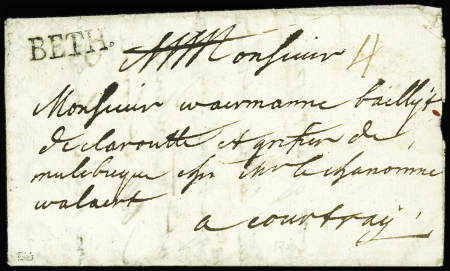 BETH.
Monsieur 4
Monsieur waermanne bailly
de claroutte et greffier de
mulebeque chez Mr le chanonne
walaert
a courtray